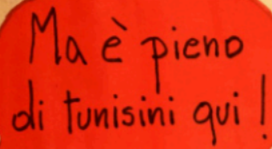 Ma è pieno
di tunisini qui !